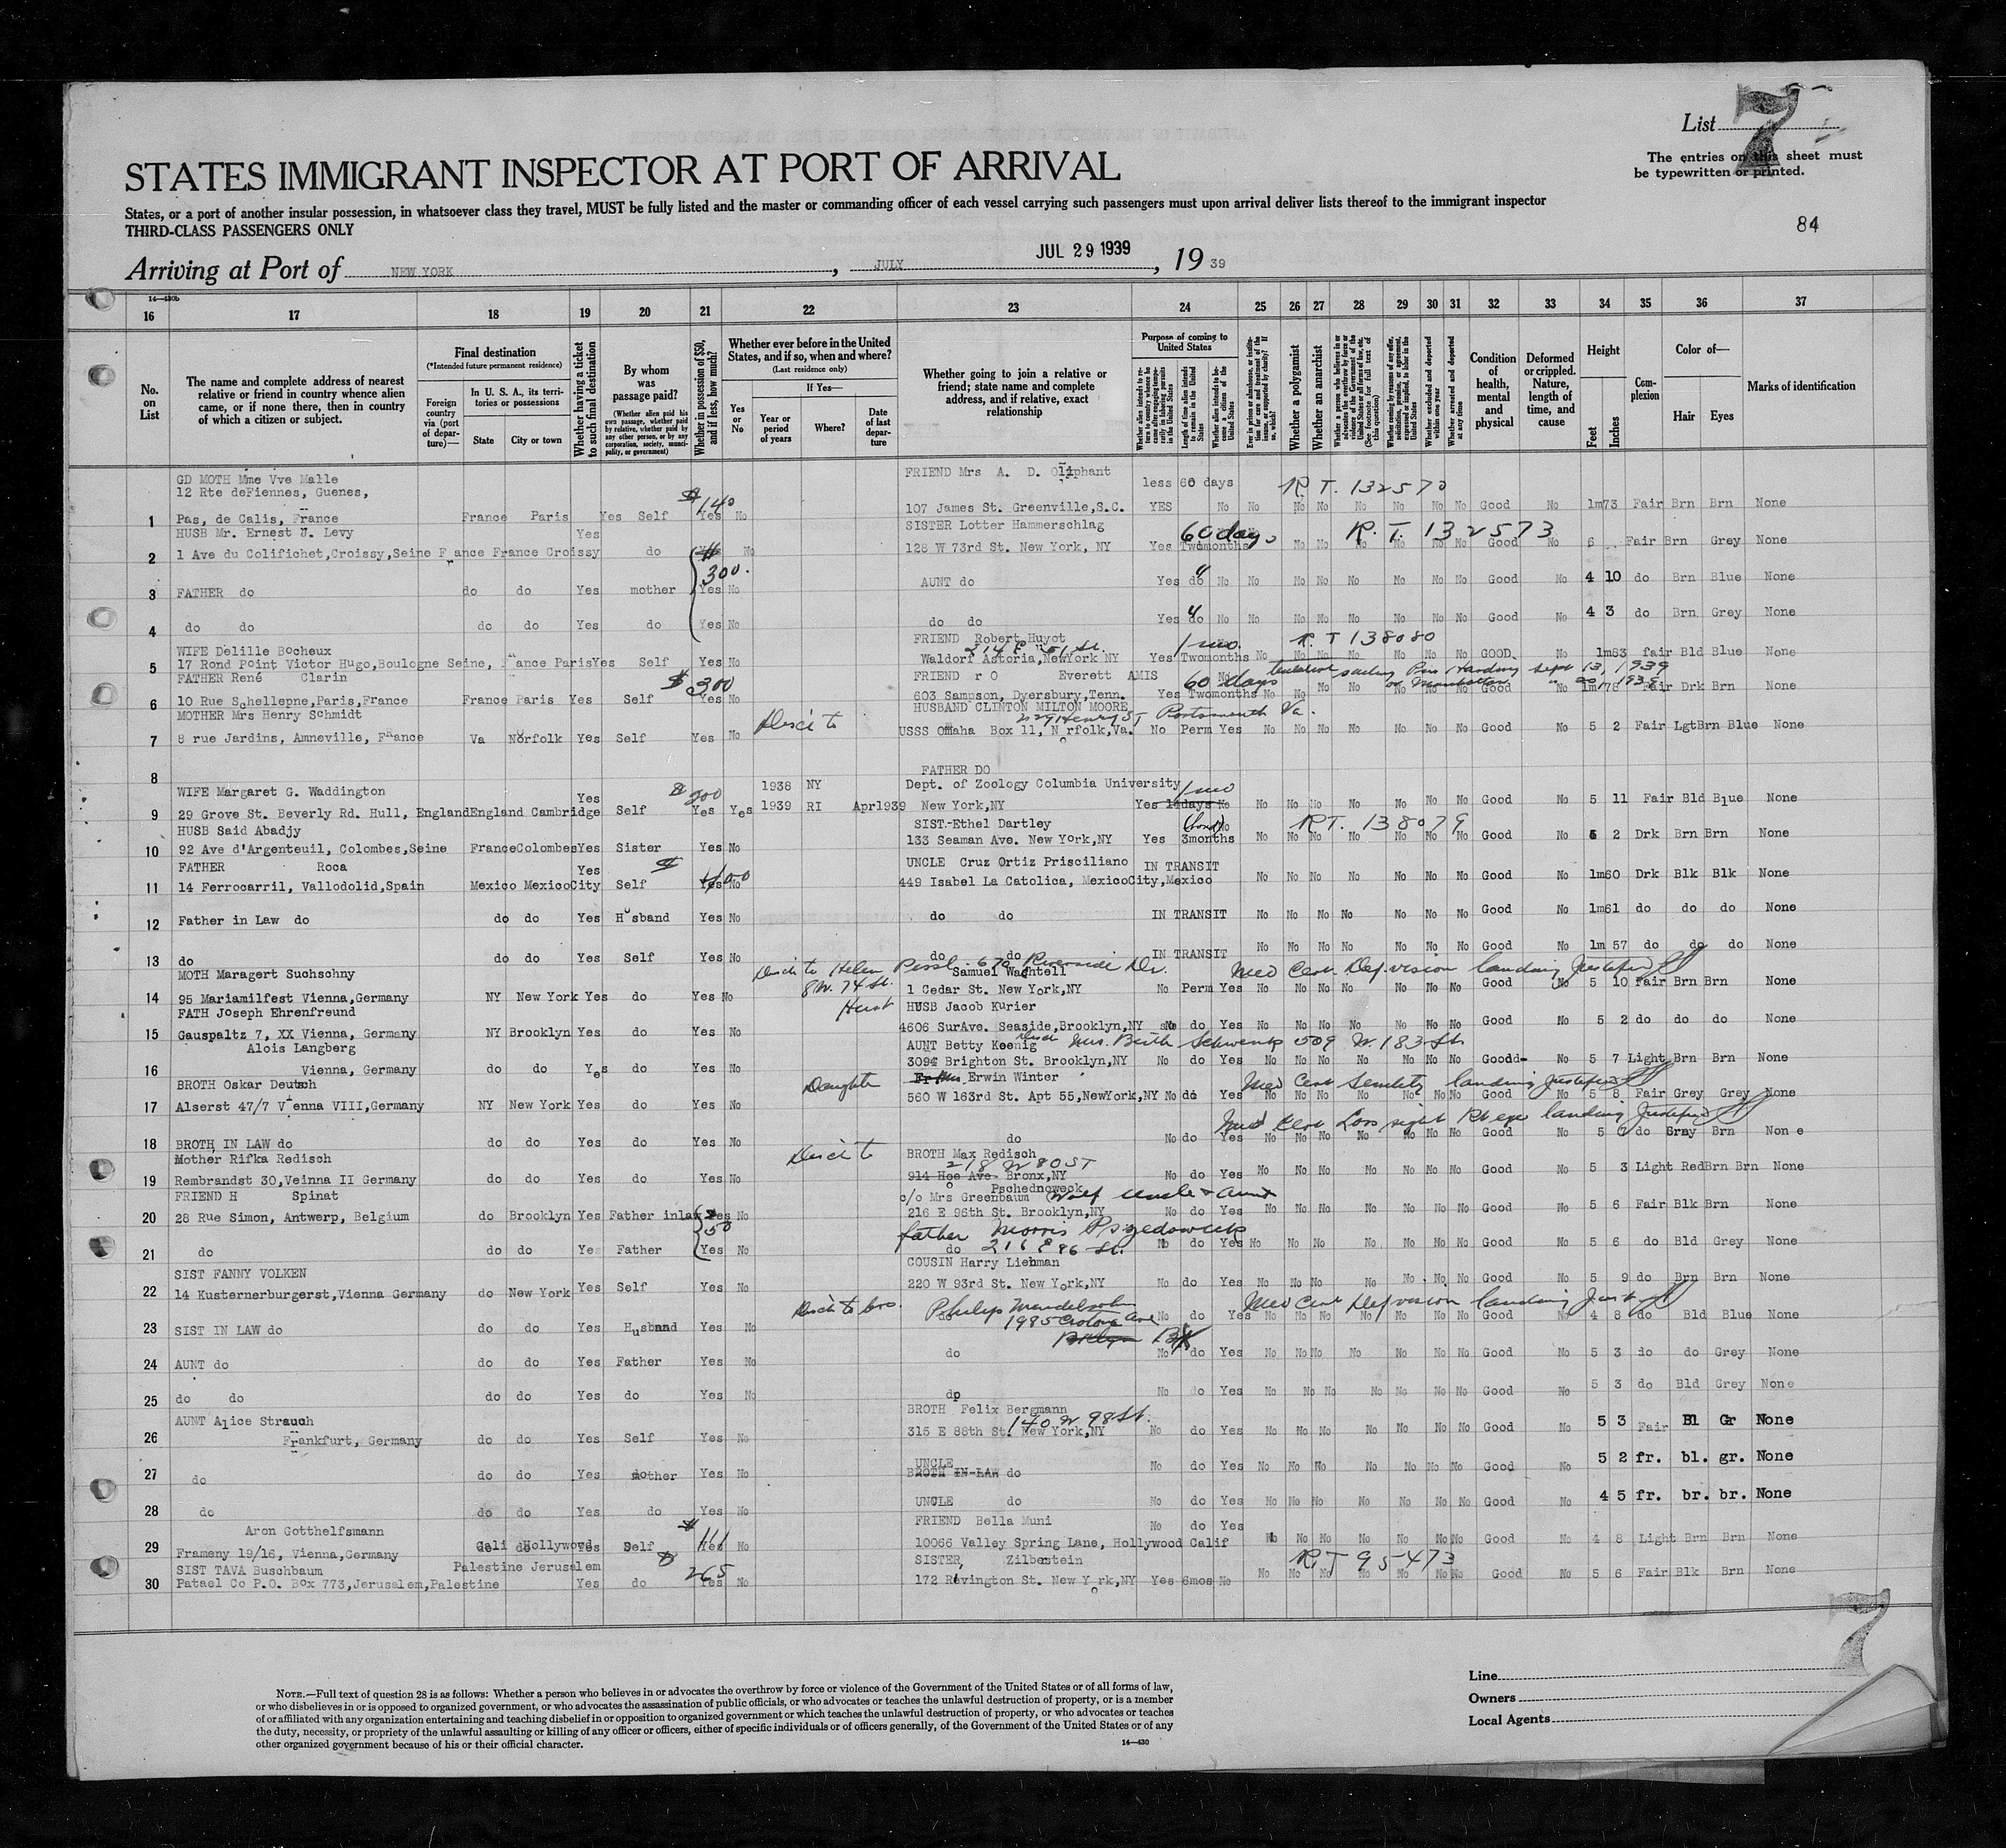 List 7
The entries on this sheet must
be typewritten or printed.
STATES IMMIGRANT INSPECTOR AT PORT OF ARRIVAL
States, or a port of another insular possession, in whatsoever class they travel, MUST be fully listed and the master or commanding officer of each vessel carrying such passengers must upon arrival deliver lists thereof to the immigrant inspector
THIRD-CLASS PASSENGERS ONLY
84
JUL 29 1939
Arriving at Port of NEW YORK, JULY, 19 39
14—430b
16 17 18 19 20 21 22 23 24 25 26 27 28 29 30 31 32 33 34 35 36 37
No. on List
The name and complete address of nearest relative or friend in country whence alien came, or if none there, then in country of which a citizen or subject.
Final destination
(*Intended future permanent residence)
Foreign country via (port of departure)—
In U. S. A., its territories or possessions
State City or town
Whether having a ticket to such final destination
By whom was passage paid?
(Whether alien paid his own passage, whether paid by relative, whether paid by any other person, or by any corporation, society, municipality, or government)
Whether in possession of $50, and if less, how much?
Whether ever before in the United States, and if so, when and where?
(Last residence only)
Yes or No
If Yes—
Year or period of years Where? Date of last departure
Whether going to join a relative or friend; state name and complete address, and if relative, exact relationship
Purpose of coming to United States
Length of time alien intends to remain in the United States
Whether alien intends to become a citizen of the United States
Whether a polygamist
Whether an anarchist
Whether excluded and deported within one year
Whether arrested and deported at any time
Condition of health, mental and physical
Deformed or crippled. Nature, length of time, and cause
Height
Feet Inches
Complexion
Color of—
Hair Eyes
Marks of identification
GD MOTH Mme Vve Malle FRIEND Mrs A. D. Oliphant less 60 days R. T. 132570
12 Rte deFiennes, Guenes, $140
1 Pas, de Calis, France France Paris Yes Self Yes No 107 James St. Greenville,S.C. YES No No No No No No No No Good No 1m73 Fair Brn Brn None
HUSB Mr. Ernest J. Levy Yes SISTER Lotter Hammerschlag 60 days R. T. 132573
2 1 Ave du Colifichet,Croissy,Seine F ance France Croissy do No 128 W 73rd St. New York, NY Yes Twomonths No No No No No No Good No 6 Fair Brn Grey None
300.
3 FATHER do do do Yes mother Yes No AUNT do Yes do No No No No No No No No Good No 4 10 do Brn Blue None
4 do do do do Yes do Yes No do do Yes do No No No No No No No No Good No 4 3 do Brn Grey None
WIFE Delille Bocheux FRIEND Robert Huyot 1 mo. R. T 138080
214 E 51 St.
5 17 Rond Point Victor Hugo,Boulogne Seine, France Paris Yes Self Yes No Waldorf Astoria,NewYork NY Yes Twomonths No No No No No No No GOOD No 1m83 fair Bld Blue None
FATHER René Clarin $300 FRIEND r O Everett AMIS 60 days tentative sailing Pres Harding Sept 13, 1939
or Manhattan " 20, 1939
6 10 Rue Schellepne,Paris,France France Paris Yes Self Yes No 603 Sampson, Dyersbury,Tenn. Yes Twomonths No No No No No No No Good 1m78 Fair Drk Brn None
MOTHER Mrs Henry Schmidt HUSBAND CLINTON MILTON MOORE
229 Henry ST Portsmouth Va.
7 8 rue Jardins, Amneville, France Va Norfolk Yes Self Yes No USSS Omaha Box 11, N rfolk,Va. No Perm Yes No No No No No No No Good No 5 2 Fair LgtBrn Blue None
8 FATHER DO
WIFE Margaret G. Waddington Yes $200 1938 NY Dept. of Zoology Columbia University 1 mo
9 29 Grove St. Beverly Rd. Hull, England England Cambridge Self Yes Yes 1939 RI Apr1939 New York,NY Yes 14days No No No No No No No No Good No 5 11 Fair Bld Blue None
HUSB Said Abadjy SIST.-Ethel Dartley (bond) No RT. 138079
10 92 Ave d'Argenteuil, Colombes,Seine France Colombes Yes Sister Yes No 133 Seaman Ave. New York,NY Yes 3months No No No No No No No Good No 5 2 Drk Brn Brn None
FATHER Roca Yes $ UNCLE Cruz Ortiz Prisciliano IN TRANSIT
11 14 Ferrocarril, Vallodolid,Spain Mexico MexicoCity Self Yes No 449 Isabel La Catolica, MexicoCity,Mexico No No No No No No No Good No 1m60 Drk Blk Blk None
12 Father in Law do do do Yes Husband Yes No do do IN TRANSIT No No No No No No No Good No 1m61 do do do None
13 do do do Yes Self Yes No do do IN TRANSIT No No No No No No No Good No 1m 57 do do do None
Disch to Helen Pessl. 670 Riverside Dr. Med Cert. Def. vision landing justified
MOTH Maragert Suchschny Samuel Wachtell
8 W. 74 St.
14 95 Mariamilfest Vienna,Germany NY New York Yes do Yes No 1 Cedar St. New York,NY No Perm Yes No No No No No No No Good No 5 10 Fair Brn Brn None
FATH Joseph Ehrenfreund HUSB Jacob Kurier
15 Gauspaltz 7, XX Vienna, Germany NY Brooklyn Yes do Yes No 4606 SurAve. Seaside,Brooklyn,NY No do Yes No No No No No No No Good No 5 2 do do do None
Alois Langberg AUNT Betty Koenig Mrs. Schwenk 509 W 183 St.
16 Vienna, Germany do do Yes do Yes No 3094 Brighton St. Brooklyn,NY No do Yes No No No No No No No Goodd- No 5 7 Light Brn Brn None
BROTH Oskar Deutsch Daughter Erwin Winter Med Cert Senility landing justified
17 Alserst 47/7 Vienna VIII,Germany NY New York Yes do Yes No 560 W 163rd St. Apt 55,NewYork,NY No do Yes No No No No No No No Good No 5 8 Fair Grey Grey None
Med Cert Loss sight Rt eye landing justified
18 BROTH IN LAW do do do Yes do Yes No do No do Yes No No No No No No No Good No 5 do Gray Brn Non e
Mother Rifka Redisch Disch to BROTH Max Redisch
218 W 80 ST
19 Rembrandst 30,Veinna II Germany do do Yes do Yes No 914 Hoe Ave- Bronx,NY No do Yes No No No No No No No Good No 5 3 Light RedBrn Brn None
FRIEND H Spinat Pschednoweck
c/o Mrs Greenbaum Wolf Uncle + Aunt
20 28 Rue Simon, Antwerp, Belgium do Brooklyn Yes Father inlaw Yes No 216 E 96th St. Brooklyn,NY No do Yes No No No No No No No Good No 5 6 Fair Blk Brn None
50 father Morris
21 do do do Yes Father Yes No do 216 E 96 St. No do Yes No No No No No No No Good No 5 6 do Bld Grey None
SIST FANNY VOLKEN COUSIN Harry Liebman
22 14 Kusternerburgerst,Vienna Germany do New York Yes Self Yes No 220 W 93rd St. New York,NY No do Yes No No No No No No No Good No 5 9 do Brn Brn None
Disch to bro. Philip Mendelsohn Med Cert Def vision landing just
23 SIST IN LAW do do do Yes Husband Yes No do 1985 Crotona Ave No do Yes No No No No No No No Good No 4 8 do Bld Blue None
Bklyn BX
24 AUNT do do do Yes Father Yes No do No do Yes No No No No No No No Good No 5 3 do do Grey None
25 do do do do Yes do Yes No do No do Yes No No No No No No No Good No 5 3 do Bld Grey None
AUNT Alice Strauch BROTH Felix Bergmann
140 W 98 St.
26 Frankfurt, Germany do do Yes Self Yes No 315 E 88th St. New York,NY No do Yes No No No No No No No Good No 5 3 Fair Bl Gr None
UNCLE
27 do do do Yes mother Yes No BROTH IN-LAW do No do Yes No No No No No No No Good No 5 2 fr. bl. gr. None
28 do do do Yes do Yes No UNCLE do No do Yes No No No No No No No Good No 4 5 fr. br. br. None
Aron Gotthelfsmann $111 FRIEND Bella Muni No do Yes
29 Frameny 19/16, Vienna,Germany Cali Hollywood Yes Self Yes No 10066 Valley Spring Lane, Hollywood Calif No No No No No No No Good No 4 8 Light Brn Brn None
SIST TAVA Buschbaum Palestine Jerusalem $265 SISTER, Zilberstein R.T 95473
30 Patael Co P.O. Box 773,Jerusalem,Palestine Yes do Yes No 172 Rivington St. New Y rk,NY Yes 6mos No No No No No No No No Good No 5 6 Fair Blk Brn None
7
Line
Owners
Local Agents
NOTE.—Full text of question 28 is as follows: Whether a person who believes in or advocates the overthrow by force or violence of the Government of the United States or of all forms of law,
or who disbelieves in or is opposed to organized government, or who advocates the assassination of public officials, or who advocates or teaches the unlawful destruction of property, or is a member
of or affiliated with any organization entertaining and teaching disbelief in or opposition to organized government or which teaches the unlawful destruction of property, or who advocates or teaches
the duty, necessity, or propriety of the unlawful assaulting or killing of any officer or officers, either of specific individuals or of officers generally, of the Government of the United States or of any
other organized government because of his or their official character.
14—430